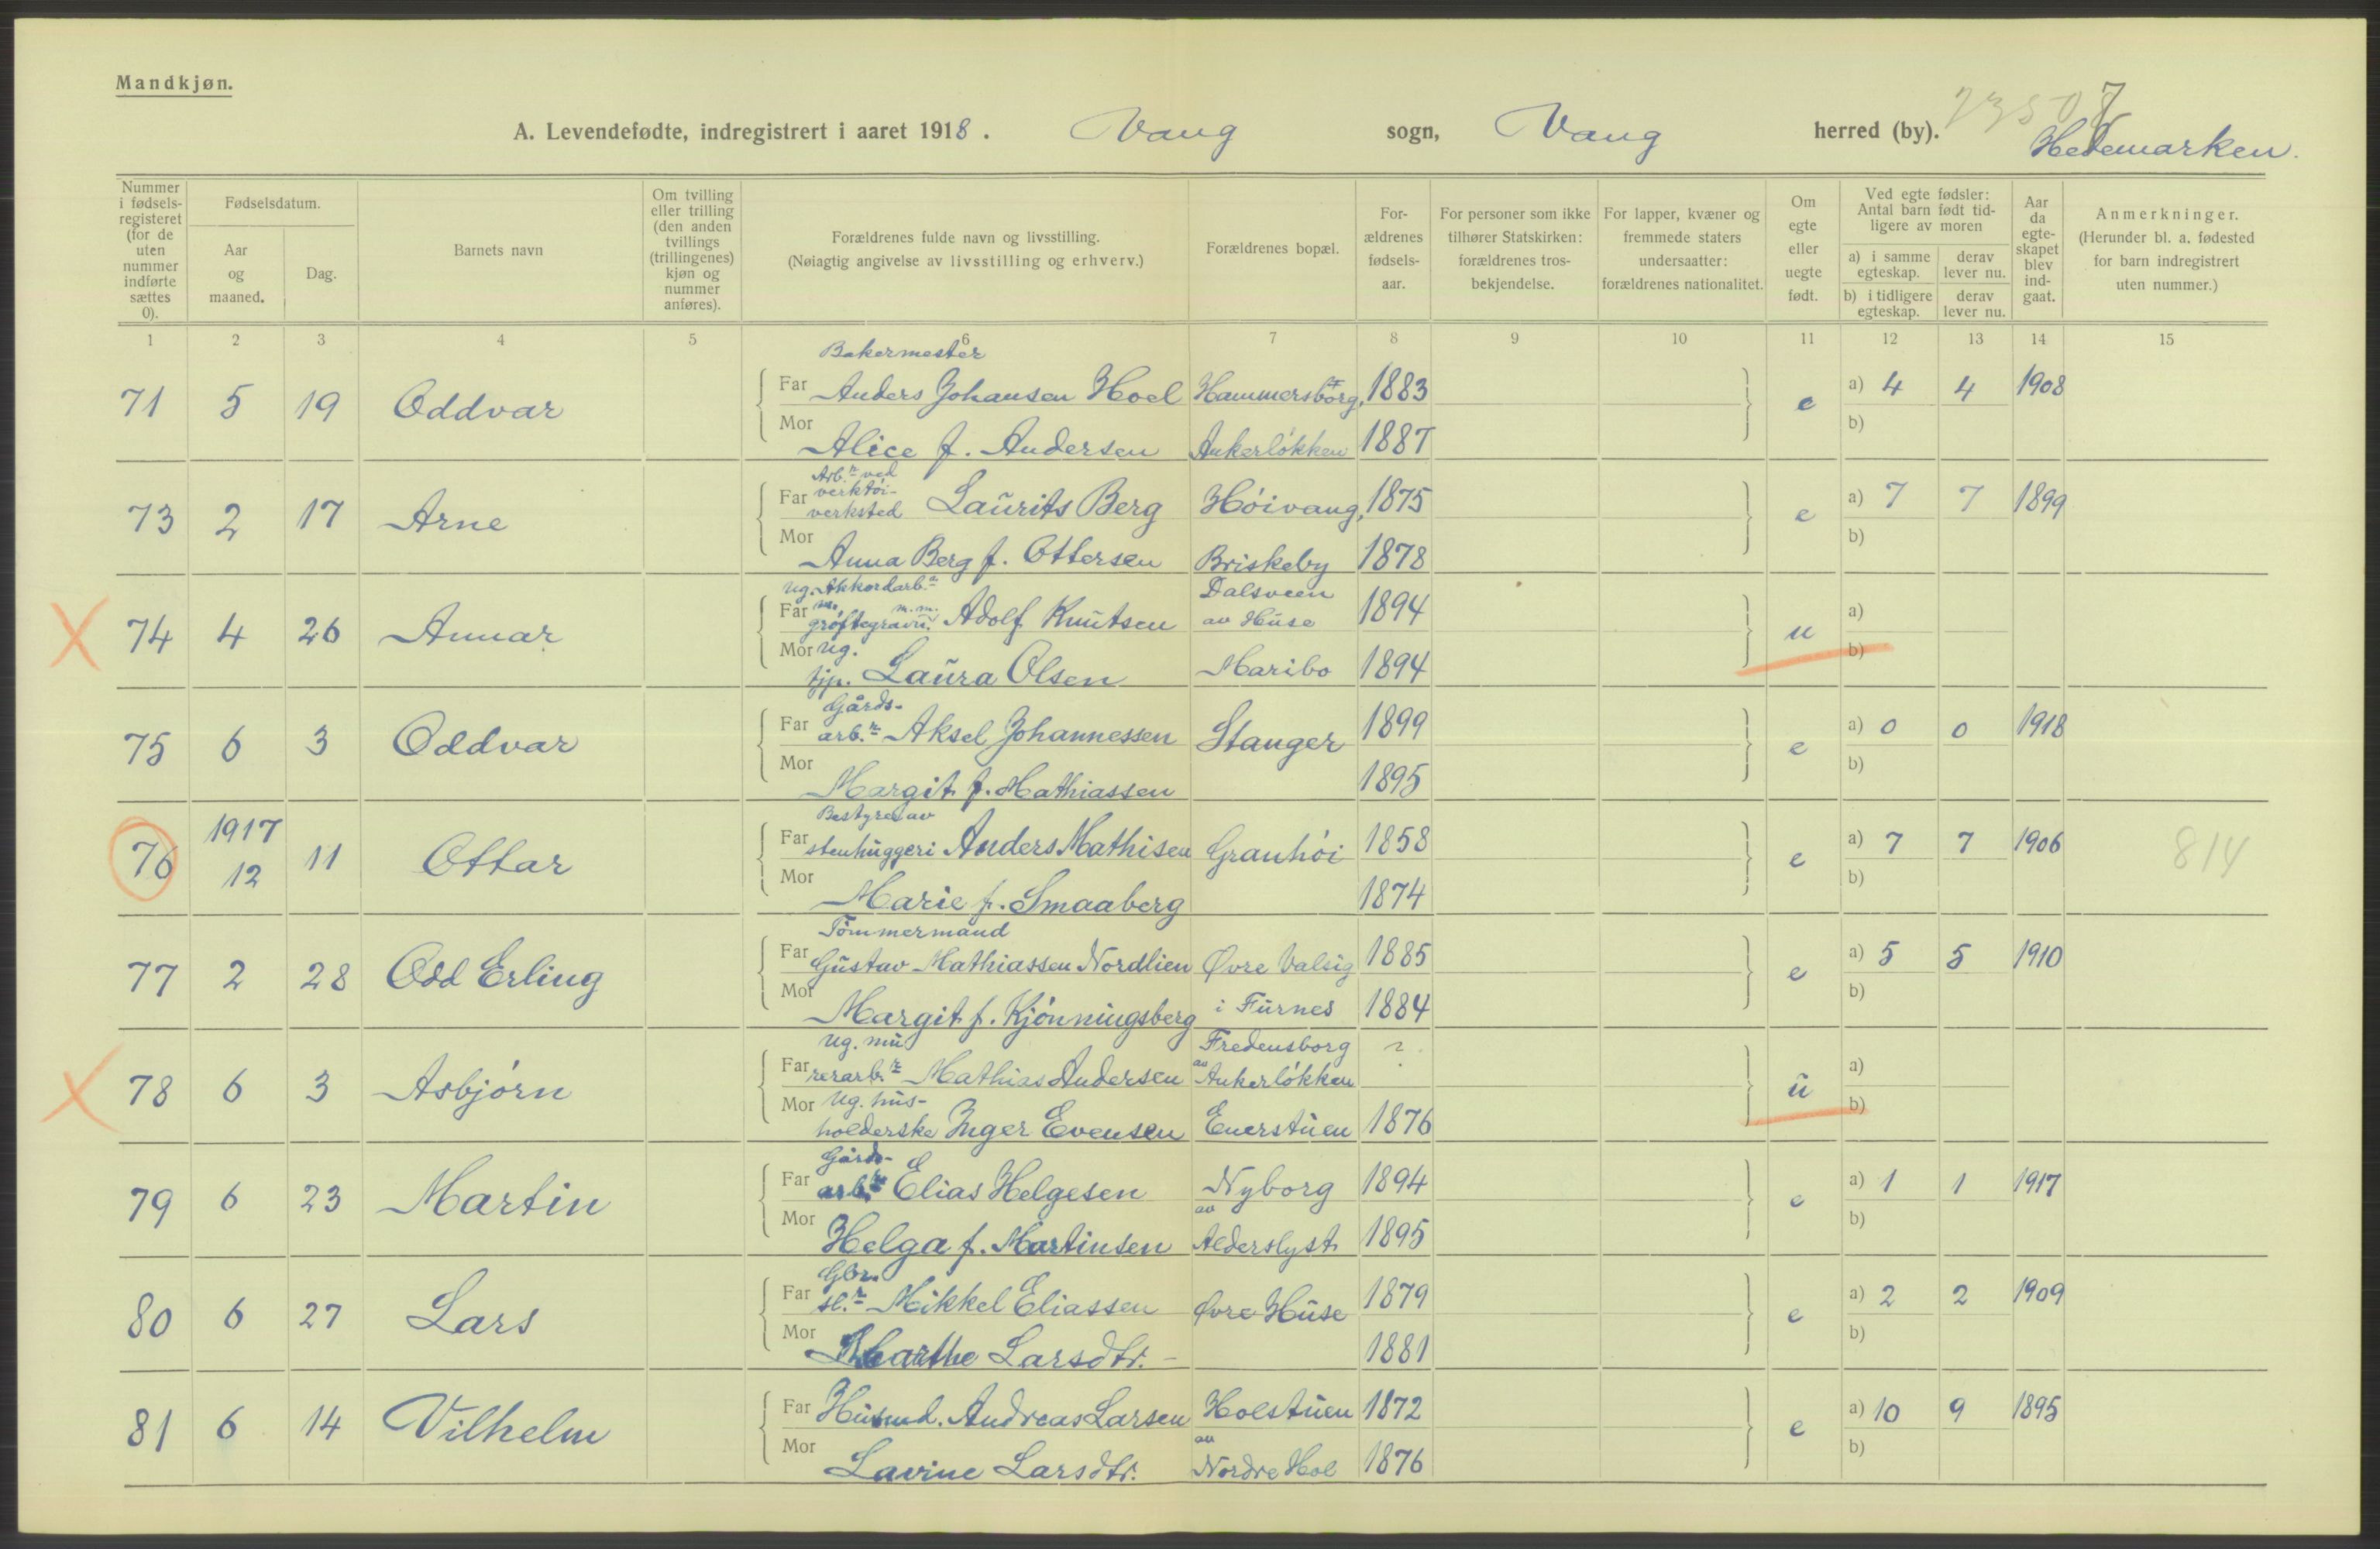 Mandkjøn.
A. Levendefødte, indregistrert i aaret 1918. Vang sogn, Vang herred (by).
Hedemarken.
Nummer i fødselsregisteret (for de uten nummer indførte sættes 0).
Fødselsdatum.
Aar og maaned.
Dag.
Barnets navn
Om tvilling eller trilling (den anden tvillings (trillingenes) kjøn og nummer anføres).
Forældrenes fulde navn og livsstilling.
(Nøiagtig angivelse av livsstilling og erhverv.)
Forældrenes bopæl.
Forældrenes fødselsaar.
For personer som ikke tilhører Statskirken: forældrenes trosbekjendelse.
For lapper, kvæner og fremmede staters undersaatter: forældrenes nationalitet.
Om egte eller uegte født.
Ved egte fødsler: Antal barn født tidligere av moren
a) i samme egteskap. derav lever nu.
b) i tidligere egteskap. derav lever nu.
Aar da egteskapet blev indgaat.
Anmerkninger.
(Herunder bl. a. fødested for barn indregistrert uten nummer.)
1 2 3 4 5 6 7 8 9 10 11 12 13 14 15
Bakermester
71 5 19 Oddvar Far Anders Johansen Hoel Hammersborg, 1883 e a) 4 4 1908
Mor Alice f. Andersen Ankerløkken 1887 b)
Arb.r ved verktøi-
73 2 17 Arne Far verksted Laurits Berg Høivang, 1875 e a) 7 7 1899
Mor Anna Berg f. Ottersen Briskeby 1878 b)
Ug. Akkordarb.r Dalsveen
74 4 26 Annar Far grøftegravn. m.m. Adolf Knutsen av Huse 1894 u a)
Mor Ug. tjp. Laura Olsen Maribo 1894 b)
Gårds-
75 6 3 Oddvar Far arb.r Aksel Johannessen Stanger 1899 e a) 0 0 1918
Mor Margit f. Mathiassen 1895 b)
Bestyrer av
76 1917 12 11 Ottar Far stenhuggeri Anders Mathisen Granhøi 1858 e a) 7 7 1906 814
Mor Marie f. Smaaberg 1874 b)
Tømmermand
77 2 28 Odd Erling Far Gustav Mathiassen Nordlien Øvre Valsig 1885 e a) 5 5 1910
Mor Margit f. Kjønningsberg i Furnes 1884 b)
Ug. mu Fredensborg ?
78 6 3 Asbjørn Far rerarb.r Mathias Andersen av Ankerløkken u a)
Mor Ug. hus-
holderske Inger Evensen Enerstuen 1876 b)
Gårds-
79 6 23 Martin Far arb.r Elias Helgesen Nyborg 1894 e a) 1 1 1917
Mor Helga f. Martinsen av Alderslyst 1895 b)
Gbr.
80 6 27 Lars Far sl.r Mikkel Eliassen Øvre Huse 1879 e a) 2 2 1909
Mor Marthe Larsdtr. 1881 b)
81 6 14 Vilhelm Far Husmd. Andreas Larsen Holstuen 1872 e a) 10 9 1895
Mor Lavine Larsdtr. av Nordre Hol 1876 b)